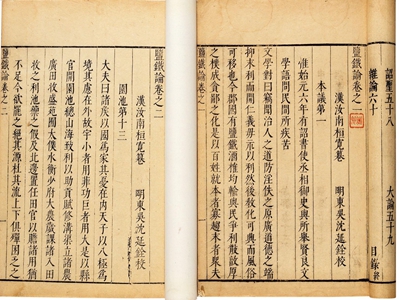 詔聖五十八　大論五十九
雜論六十　目錄終
鹽鐵論卷之一
漢汝南桓寬撰　明東吳沈延銓校
本議第一
惟始元六年有詔書使丞相御史與所舉賢良文
學語問民間所疾苦
文學對曰竊聞治人之道防淫佚之原廣道德之端
抑末利而開仁義毋示以利然後教化可興而風俗
可移也今郡國有鹽鐵酒榷均輸與民爭利散敦厚
之樸成貪鄙之化是以百姓就本者寡趨末者衆夫
鹽鐵論卷之一
鹽鐵論卷之二
漢汝南桓寬撰　明東吳沈延銓校
園池第十三
大夫曰諸侯以國爲家其憂在內天子以八極爲
境其慮在外故宇小者用菲功巨者用大是以縣
官開園池總山海致利以助貢賦修溝渠立諸農
廣田牧盛苑囿太僕水衡少府大農歲課諸入田
牧之利池籞之假及北邊置任田官以贍諸用而猶
不足今欲罷之絕其源杜其流上下俱殫困乏之
鹽鐵論卷之二